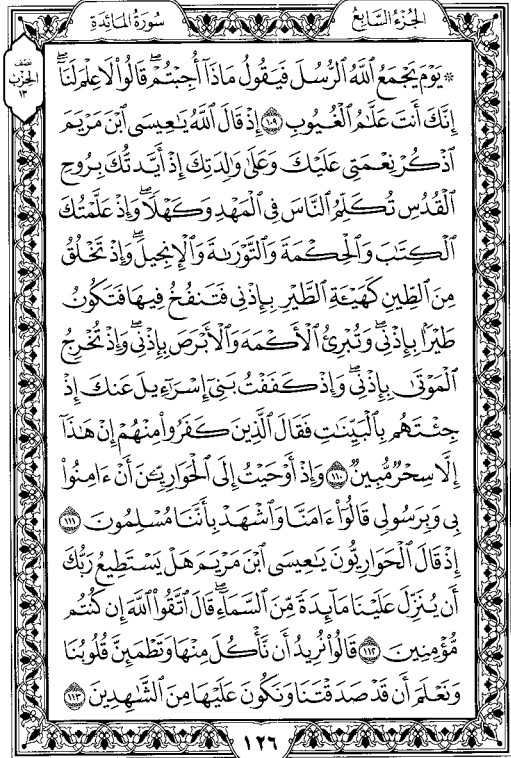 الجزء السابع
سورة المائدة
نصف
الحزب
١٣
۞ يَوْمَ يَجْمَعُ اللَّهُ الرُّسُلَ فَيَقُولُ مَاذَا أُجِبْتُمْ ۖ قَالُوا لَا عِلْمَ لَنَا ۖ
إِنَّكَ أَنتَ عَلَّامُ الْغُيُوبِ ١٠٩ إِذْ قَالَ اللَّهُ يَا عِيسَى ابْنَ مَرْيَمَ
اذْكُرْ نِعْمَتِي عَلَيْكَ وَعَلَىٰ وَالِدَتِكَ إِذْ أَيَّدتُّكَ بِرُوحِ
الْقُدُسِ تُكَلِّمُ النَّاسَ فِي الْمَهْدِ وَكَهْلًا ۖ وَإِذْ عَلَّمْتُكَ
الْكِتَابَ وَالْحِكْمَةَ وَالتَّوْرَاةَ وَالْإِنجِيلَ ۖ وَإِذْ تَخْلُقُ
مِنَ الطِّينِ كَهَيْئَةِ الطَّيْرِ بِإِذْنِي فَتَنفُخُ فِيهَا فَتَكُونُ
طَيْرًا بِإِذْنِي ۖ وَتُبْرِئُ الْأَكْمَهَ وَالْأَبْرَصَ بِإِذْنِي ۖ وَإِذْ تُخْرِجُ
الْمَوْتَىٰ بِإِذْنِي ۖ وَإِذْ كَفَفْتُ بَنِي إِسْرَائِيلَ عَنكَ إِذْ
جِئْتَهُم بِالْبَيِّنَاتِ فَقَالَ الَّذِينَ كَفَرُوا مِنْهُمْ إِنْ هَٰذَا
إِلَّا سِحْرٌ مُّبِينٌ ١١٠ وَإِذْ أَوْحَيْتُ إِلَى الْحَوَارِيِّينَ أَنْ آمِنُوا
بِي وَبِرَسُولِي قَالُوا آمَنَّا وَاشْهَدْ بِأَنَّنَا مُسْلِمُونَ ١١١
إِذْ قَالَ الْحَوَارِيُّونَ يَا عِيسَى ابْنَ مَرْيَمَ هَلْ يَسْتَطِيعُ رَبُّكَ
أَن يُنَزِّلَ عَلَيْنَا مَائِدَةً مِّنَ السَّمَاءِ ۖ قَالَ اتَّقُوا اللَّهَ إِن كُنتُم
مُّؤْمِنِينَ ١١٢ قَالُوا نُرِيدُ أَن نَّأْكُلَ مِنْهَا وَتَطْمَئِنَّ قُلُوبُنَا
وَنَعْلَمَ أَن قَدْ صَدَقْتَنَا وَنَكُونَ عَلَيْهَا مِنَ الشَّاهِدِينَ ١١٣
١٢٦